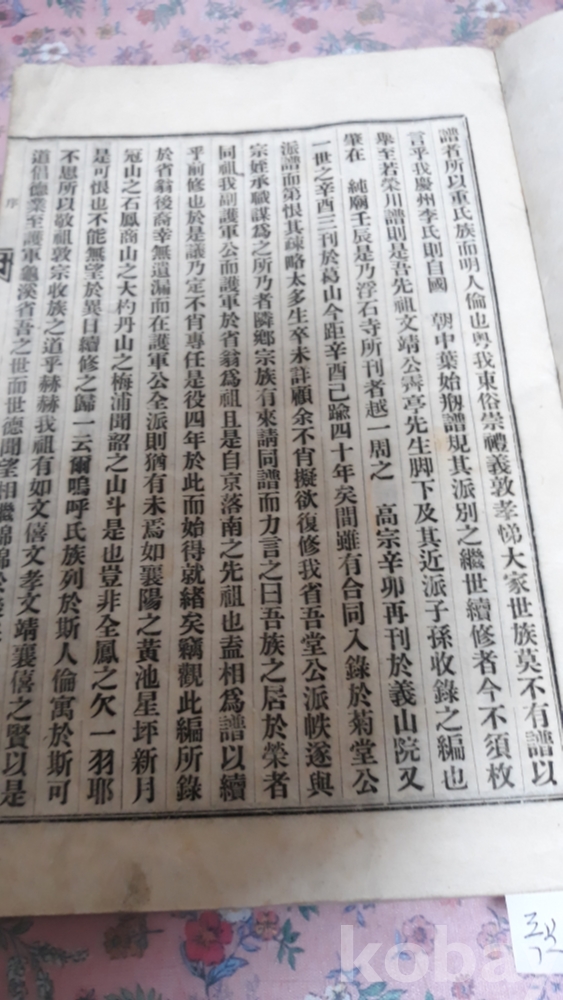 譜者所以重氏族而明人倫也粤我東俗崇禮義敦孝悌大家世族莫不有譜以
言乎我慶州李氏則自國 朝中葉始刱譜規其派別之繼世續修者今不須枚
擧至若榮川譜則是吾先祖文靖公霽亭先生脚下及其近派子孫收錄之編也
肇在 純廟壬辰是乃浮石寺所刊者越一周之 高宗辛卯再刊於義山院又
一世之辛酉三刊於葛山今距辛酉已踰四十年矣間雖有合同入錄於菊堂公
派譜而第恨其疎略太多生卒未詳顧余不肖擬欲復修我省吾堂公派帙遂與
宗姪承職謀爲之所乃者隣鄕宗族有來請同譜而力言之曰吾族之居於榮者
同祖我副護軍公而護軍於省翁爲祖且是自京落南之先祖也盍相爲譜以續
乎前修也於是議乃定不肖專任是役四年於此而始得就緖矣竊觀此編所錄
於省翁後裔幸無遺漏而在護軍公全派則猶有未焉如襄陽之黃池星坪新月
冠山之石鳳商山之大杓丹山之梅浦聞韶之山斗是也豈非全鳳之欠一羽耶
是可恨也不能無望於異日續修之歸一云爾嗚呼氏族列於斯人倫寓於斯可
不思所以敬祖敦宗收族之道乎赫赫我祖有如文僖文孝文靖襄僖之賢以是
道倡德業至護軍龜溪省吾之世而世德聞望相繼綿綿
序
koba